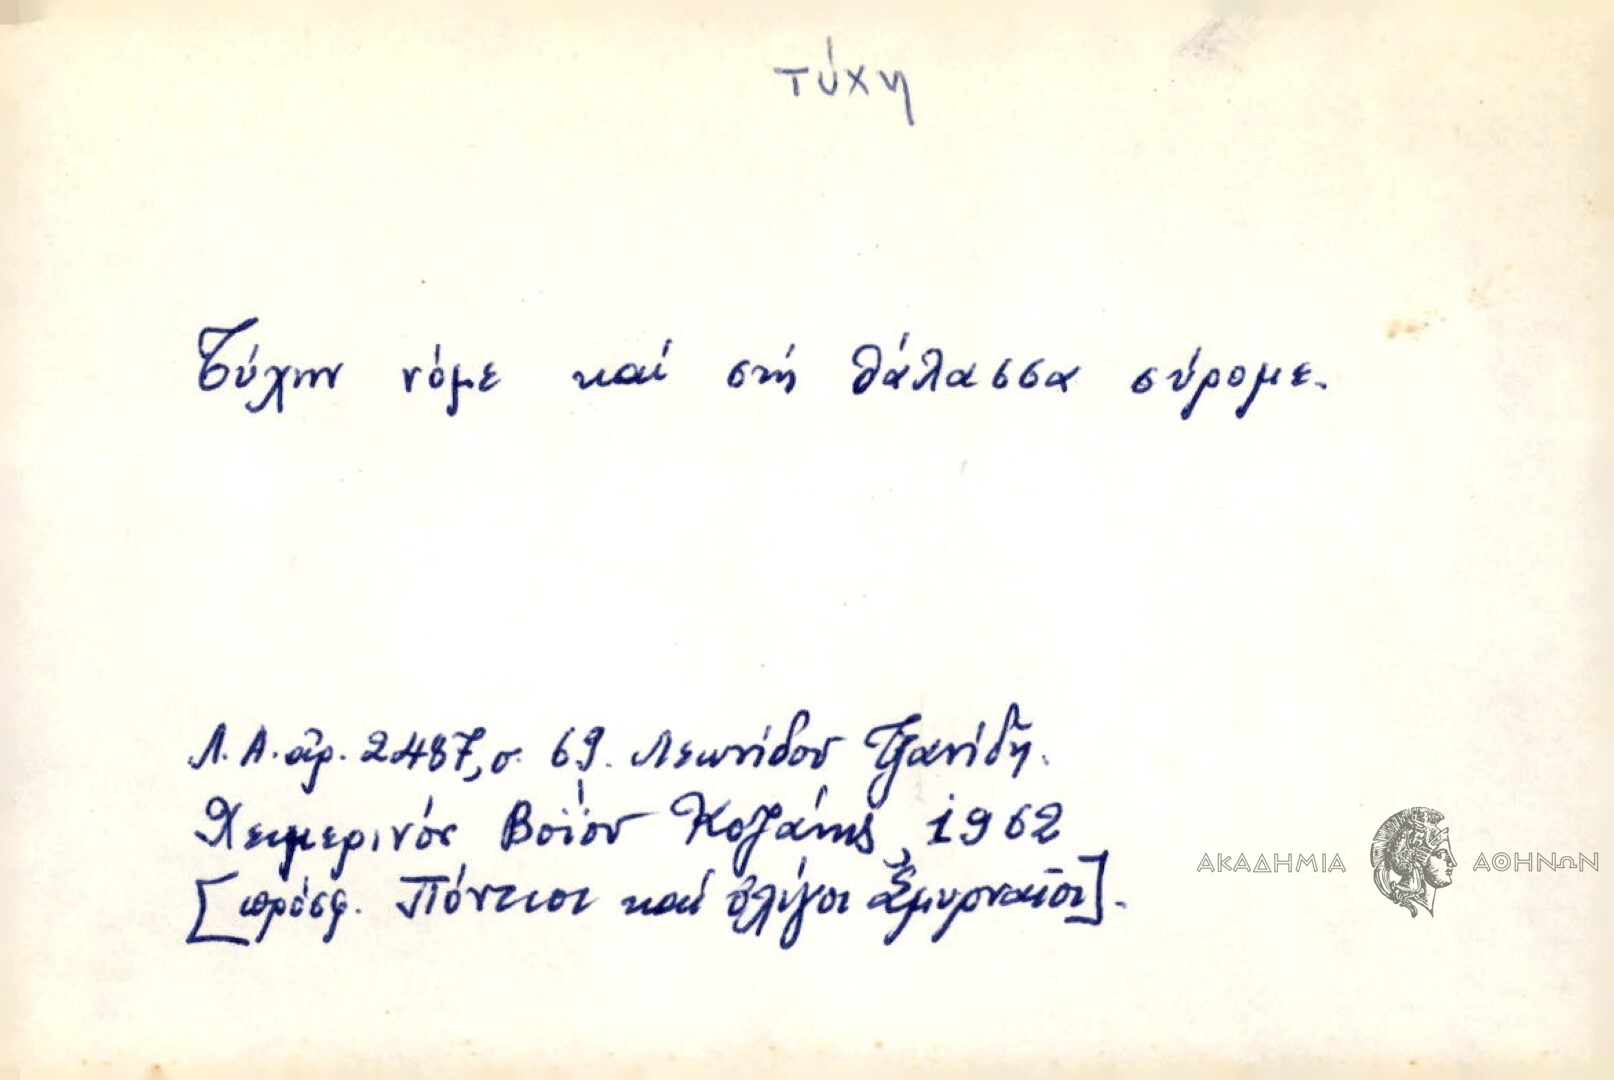 τύχη
Τύχην νόμε καί στή θάλασσα σύρομε.
Λ. Α. ἀρ. 2487, σ. 69. Λεωνίδου Τζανίδη.
Χειμερινός Βοΐου Κοζάνης, 1962
[πρόσφ. Πόντιοι καί ὀλίγοι Σμυρναῖοι].
ΑΚΑΔΗΜΙΑ ΑΘΗΝΩΝ